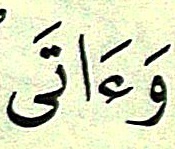 وَءَاتَى